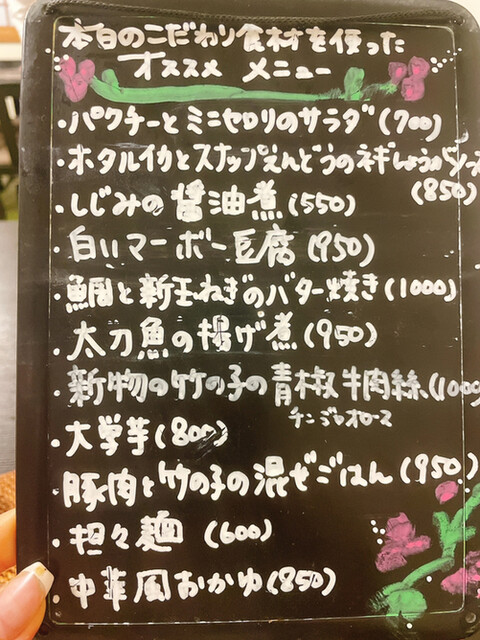 本日のこだわり食材を使った
オススメ メニュー
・パクチーとミニセロリのサラダ(700)
・ホタルイカとスナップえんどうのネギしょうがソース
(850)
・しじみの醤油煮(550)
・白いマーボー豆腐(950)
・鯛と新玉ねぎのバター焼き(1000)
・太刀魚の揚げ煮(950)
・新物の竹の子の青椒牛肉絲(1000
チンジャオロース
・大学芋(800)
・豚肉と竹の子の混ぜごはん(950)
・担々麺(600)
・中華風おかゆ(850)